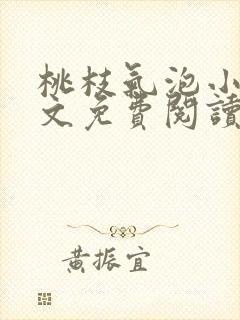 桃枝氣泡小
文免費閱讀
黃振宜